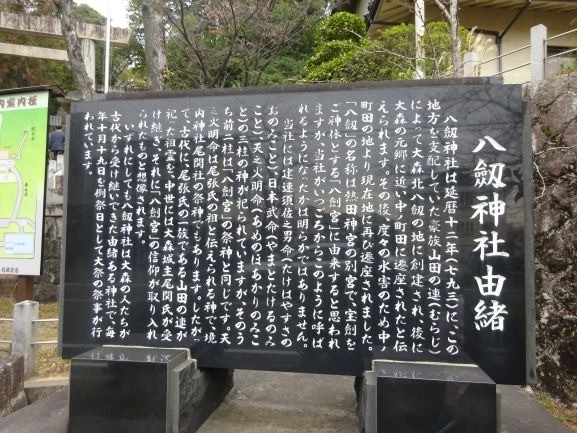 八劔神社由緒
八劔神社は延暦十二年（七九三）に、この
地方を支配していた豪族山田の連（むらじ）
によって大森北八劔の地に創建され、後に
大森の元郷に近い中ノ町田に遷座されたと伝
えられます。その後、度々の水害のため中ノ
町田の地より現在地に再び遷座されました。
「八劔」の名称は熱田神宮の別宮で、宝剣を
ご神体とする「八剣宮」に由来すると思われ
ますが、当社がいつころからこのように呼ば
れるようになったかは明らかではありません。
当社には建速須佐之男命（たけはやすさの
おのみこと）、日本武命（やまとたけるのみ
こと）、天之火明命（あめのほあかりのみこ
と）の三柱の神が祀られていますが、そのう
ち前二柱は「八剣宮」の祭神と同じです。天
之火明命は尾張氏の祖と伝えられる神で、境
内神社尾関社の祭神でもあります。したがっ
て、古代に、尾張氏の一族である山田の連が
祀った祖霊を、中世には大森城主尾関氏が受
け継ぎ、それに「八剣宮」の信仰が取り入れ
られたものと想像されます。
いずれにしても八劔神社は大森の人たちが
古代から受け継いできた由緒ある神社で、毎
年十月十九日を例祭日として大祭の祭事が行
われています。
内案内板